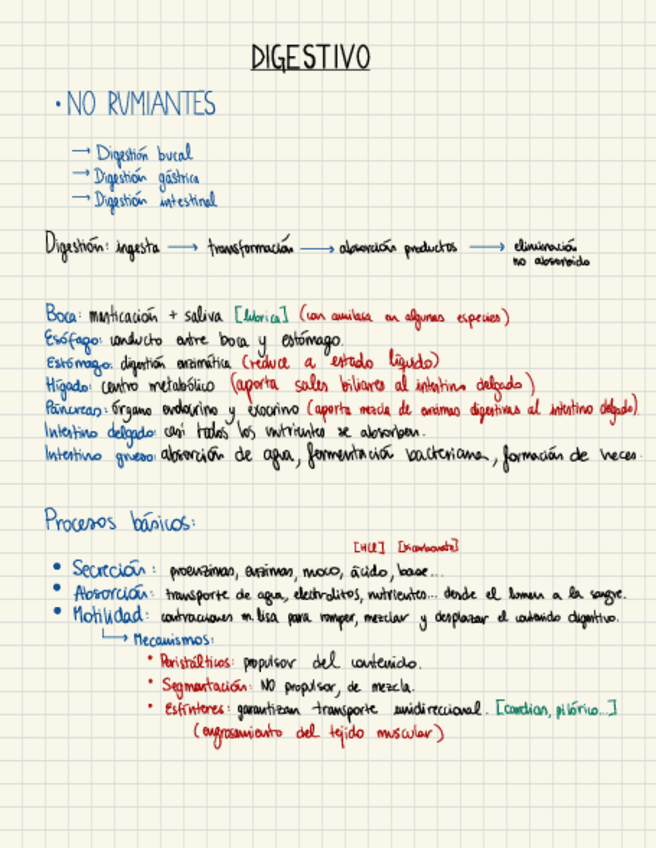 DIGESTIVO
• NO RUMIANTES
→ Digestión bucal
→ Digestión gástrica
→ Digestión intestinal
Digestión: ingesta → transformación → absorción productos → eliminación
no absorbido
Boca: masticación + saliva [lubrica] (con amilasa en algunas especies)
Esófago: conducto entre boca y estómago.
Estómago: digestión enzimática (reduce a estado líquido)
Hígado: centro metabólico (aporta sales biliares al intestino delgado)
Páncreas: órgano endocrino y exocrino (aporta mezcla de enzimas digestivas al intestino delgado)
Intestino delgado: casi todos los nutrientes se absorben.
Intestino grueso: absorción de agua, fermentación bacteriana, formación de heces.
Procesos básicos:
[HCl] [bicarbonato]
• Secreción: proenzimas, enzimas, moco, ácido, base...
• Absorción: transporte de agua, electrolitos, nutrientes... desde el lumen a la sangre.
• Motilidad: contracciones m. lisa para romper, mezclar y desplazar el contenido digestivo.
↳ Mecanismos:
• Peristálticos: propulsor del contenido.
• Segmentación: NO propulsor, de mezcla.
• Esfínteres: garantizan transporte unidireccional. [cardias, pilórico...]
(engrosamiento del tejido muscular)